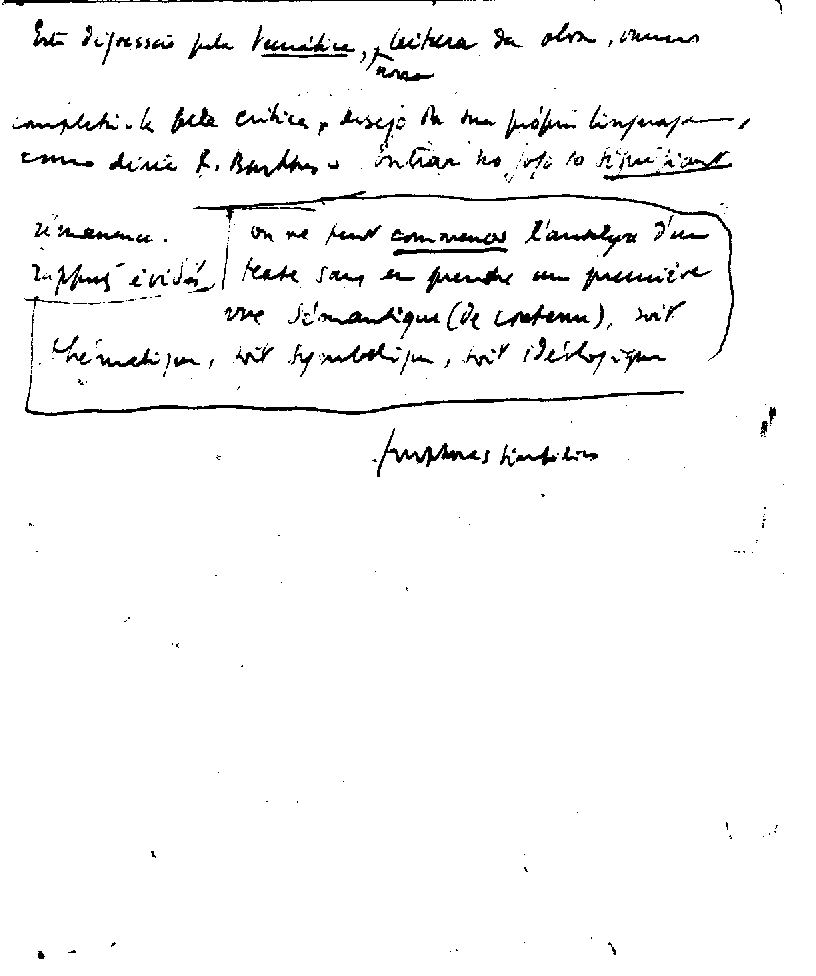 Esta digressão pela temática, leitura da obra, vamos
nossa
completá-la pela crítica, desejo da sua própria linguagem,
como diria R. Barthes. Entrar no jogo do signifiant
rémanence. on ne peut commencer l'analyse d'un
rapport évidé texte sans en prendre une première
vue sémantique (de contenu), soit
thématique, soit symbolique, soit idéologique